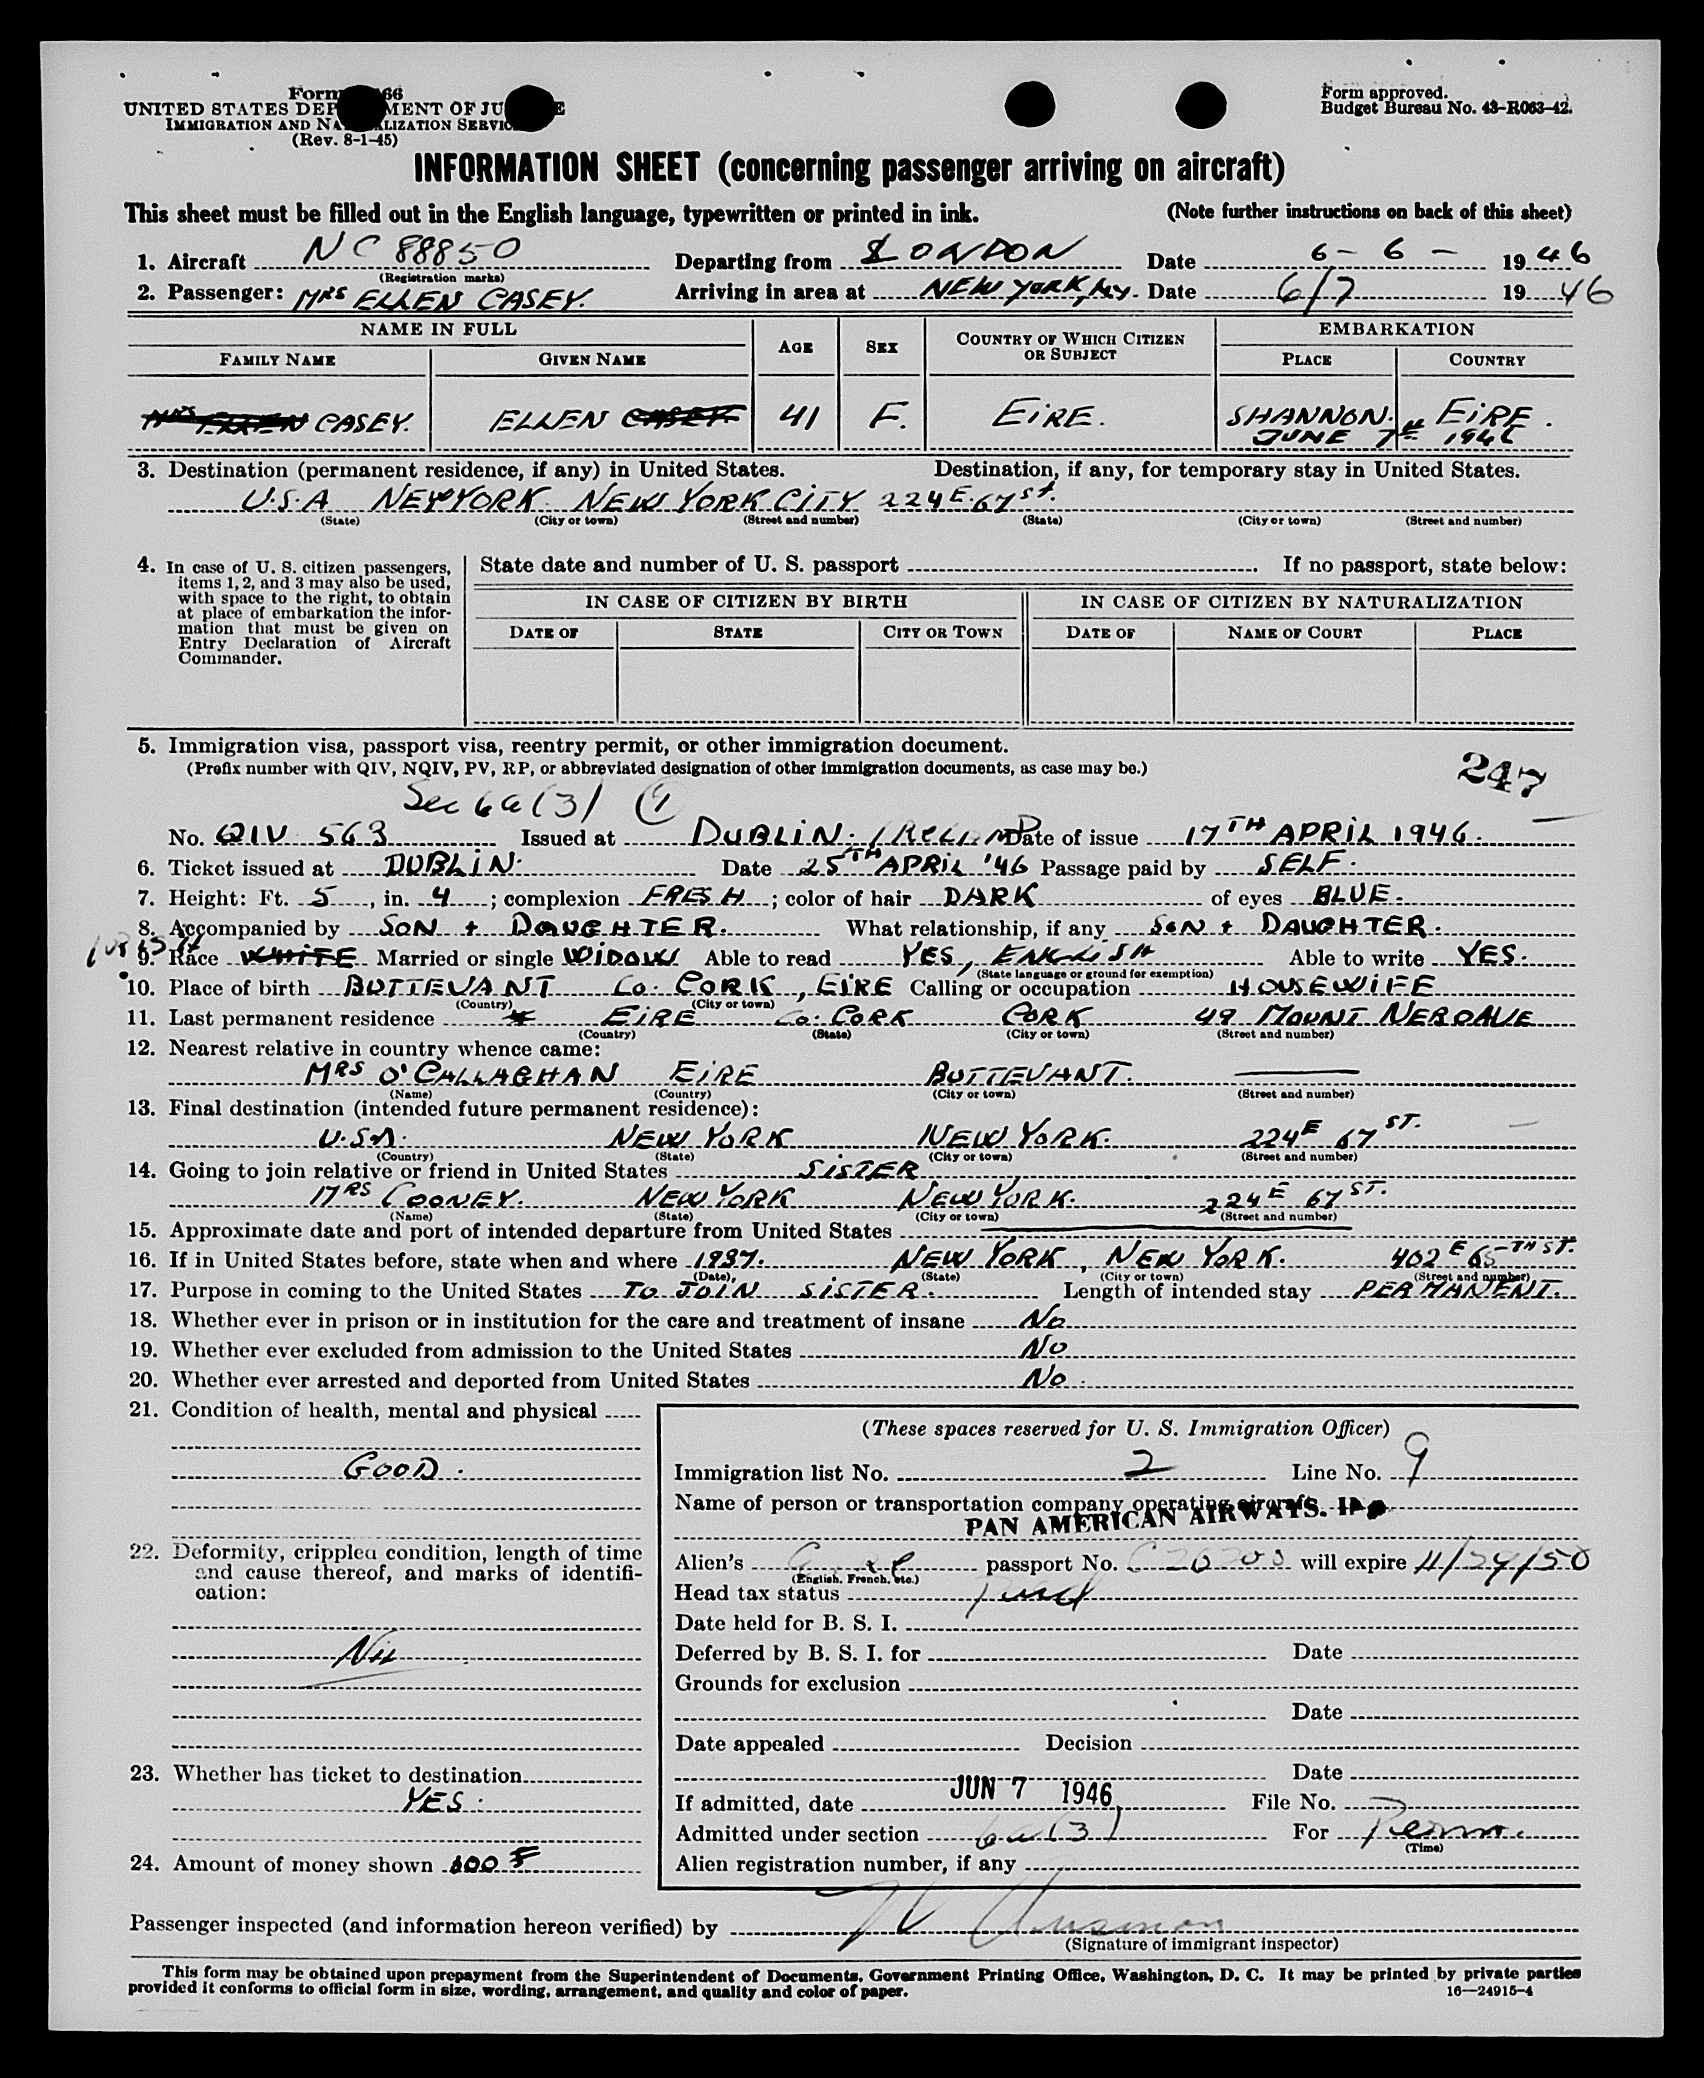 Form 66
UNITED STATES DEP MENT OF JU E
IMMIGRATION AND NA LIZATION SERVIC
(Rev. 8-1-45)
Form approved.
Budget Bureau No. 43-R063-42.
INFORMATION SHEET (concerning passenger arriving on aircraft)
This sheet must be filled out in the English language, typewritten or printed in ink. (Note further instructions on back of this sheet)
1. Aircraft NC 88850 Departing from LONDON Date 6-6- 1946
(Registration marks)
2. Passenger: MRS ELLEN CASEY. Arriving in area at NEW YORK, NY. Date 6/7 1946
NAME IN FULL AGE SEX COUNTRY OF WHICH CITIZEN OR SUBJECT EMBARKATION
FAMILY NAME GIVEN NAME PLACE COUNTRY
MRS ELLEN CASEY. ELLEN CASEY 41 F. EIRE. SHANNON. EIRE.
JUNE 7TH 1946
3. Destination (permanent residence, if any) in United States. Destination, if any, for temporary stay in United States.
U.S.A NEW YORK NEW YORK CITY 224 E. 67 St.
(State) (City or town) (Street and number) (State) (City or town) (Street and number)
4. In case of U. S. citizen passengers, items 1, 2, and 3 may also be used, with space to the right, to obtain at place of embarkation the information that must be given on Entry Declaration of Aircraft Commander.
State date and number of U. S. passport If no passport, state below:
IN CASE OF CITIZEN BY BIRTH IN CASE OF CITIZEN BY NATURALIZATION
DATE OF STATE CITY OR TOWN DATE OF NAME OF COURT PLACE
5. Immigration visa, passport visa, reentry permit, or other immigration document.
(Prefix number with QIV, NQIV, PV, RP, or abbreviated designation of other immigration documents, as case may be.)
247
Sec 6a(3)
No. QIV 563 Issued at DUBLIN. IRELAND Date of issue 17TH APRIL 1946.
6. Ticket issued at DUBLIN. Date 25TH APRIL '46 Passage paid by SELF.
7. Height: Ft. 5, in. 4; complexion FRESH; color of hair DARK of eyes BLUE.
8. Accompanied by SON + DAUGHTER. What relationship, if any SON + DAUGHTER.
IRISH
9. Race WHITE Married or single WIDOW Able to read YES, ENGLISH Able to write YES.
(State language or ground for exemption)
10. Place of birth BUTTEVANT Co. CORK, EIRE Calling or occupation HOUSEWIFE
(Country) (City or town)
11. Last permanent residence EIRE Co: CORK CORK 49 MOUNT NEBOAVE
(Country) (State) (City or town) (Street and number)
12. Nearest relative in country whence came:
MRS O'CALLAGHAN EIRE BUTTEVANT.
(Name) (Country) (City or town) (Street and number)
13. Final destination (intended future permanent residence):
U.S.A. NEW YORK NEW YORK. 224 E 67 ST.
(Country) (State) (City or town) (Street and number)
14. Going to join relative or friend in United States SISTER
MRS COONEY. NEW YORK NEW YORK. 224 E 67 ST.
(Name) (State) (City or town) (Street and number)
15. Approximate date and port of intended departure from United States
16. If in United States before, state when and where 1937. NEW YORK, NEW YORK. 402 E 65TH ST.
(Date), (State) (City or town) (Street and number)
17. Purpose in coming to the United States TO JOIN SISTER. Length of intended stay PERMANENT.
18. Whether ever in prison or in institution for the care and treatment of insane No
19. Whether ever excluded from admission to the United States No
20. Whether ever arrested and deported from United States No.
21. Condition of health, mental and physical
GOOD.
22. Deformity, crippled condition, length of time and cause thereof, and marks of identification:
Nil
23. Whether has ticket to destination
YES.
24. Amount of money shown
(These spaces reserved for U. S. Immigration Officer)
Immigration list No. 2 Line No. 9
Name of person or transportation company operating aircraft
PAN AMERICAN AIRWAYS.
Alien's passport No. will expire 11/29/50
(English, French, etc.)
Head tax status Paid
Date held for B. S. I.
Deferred by B. S. I. for Date
Grounds for exclusion
Date
Date appealed Decision
Date
If admitted, date JUN 7 1946 File No.
Admitted under section 6a(3) For Perm.
(Time)
Alien registration number, if any
Passenger inspected (and information hereon verified) by
(Signature of immigrant inspector)
This form may be obtained upon prepayment from the Superintendent of Documents, Government Printing Office, Washington, D. C. It may be printed by private parties
provided it conforms to official form in size, wording, arrangement, and quality and color of paper. 16—24915-4